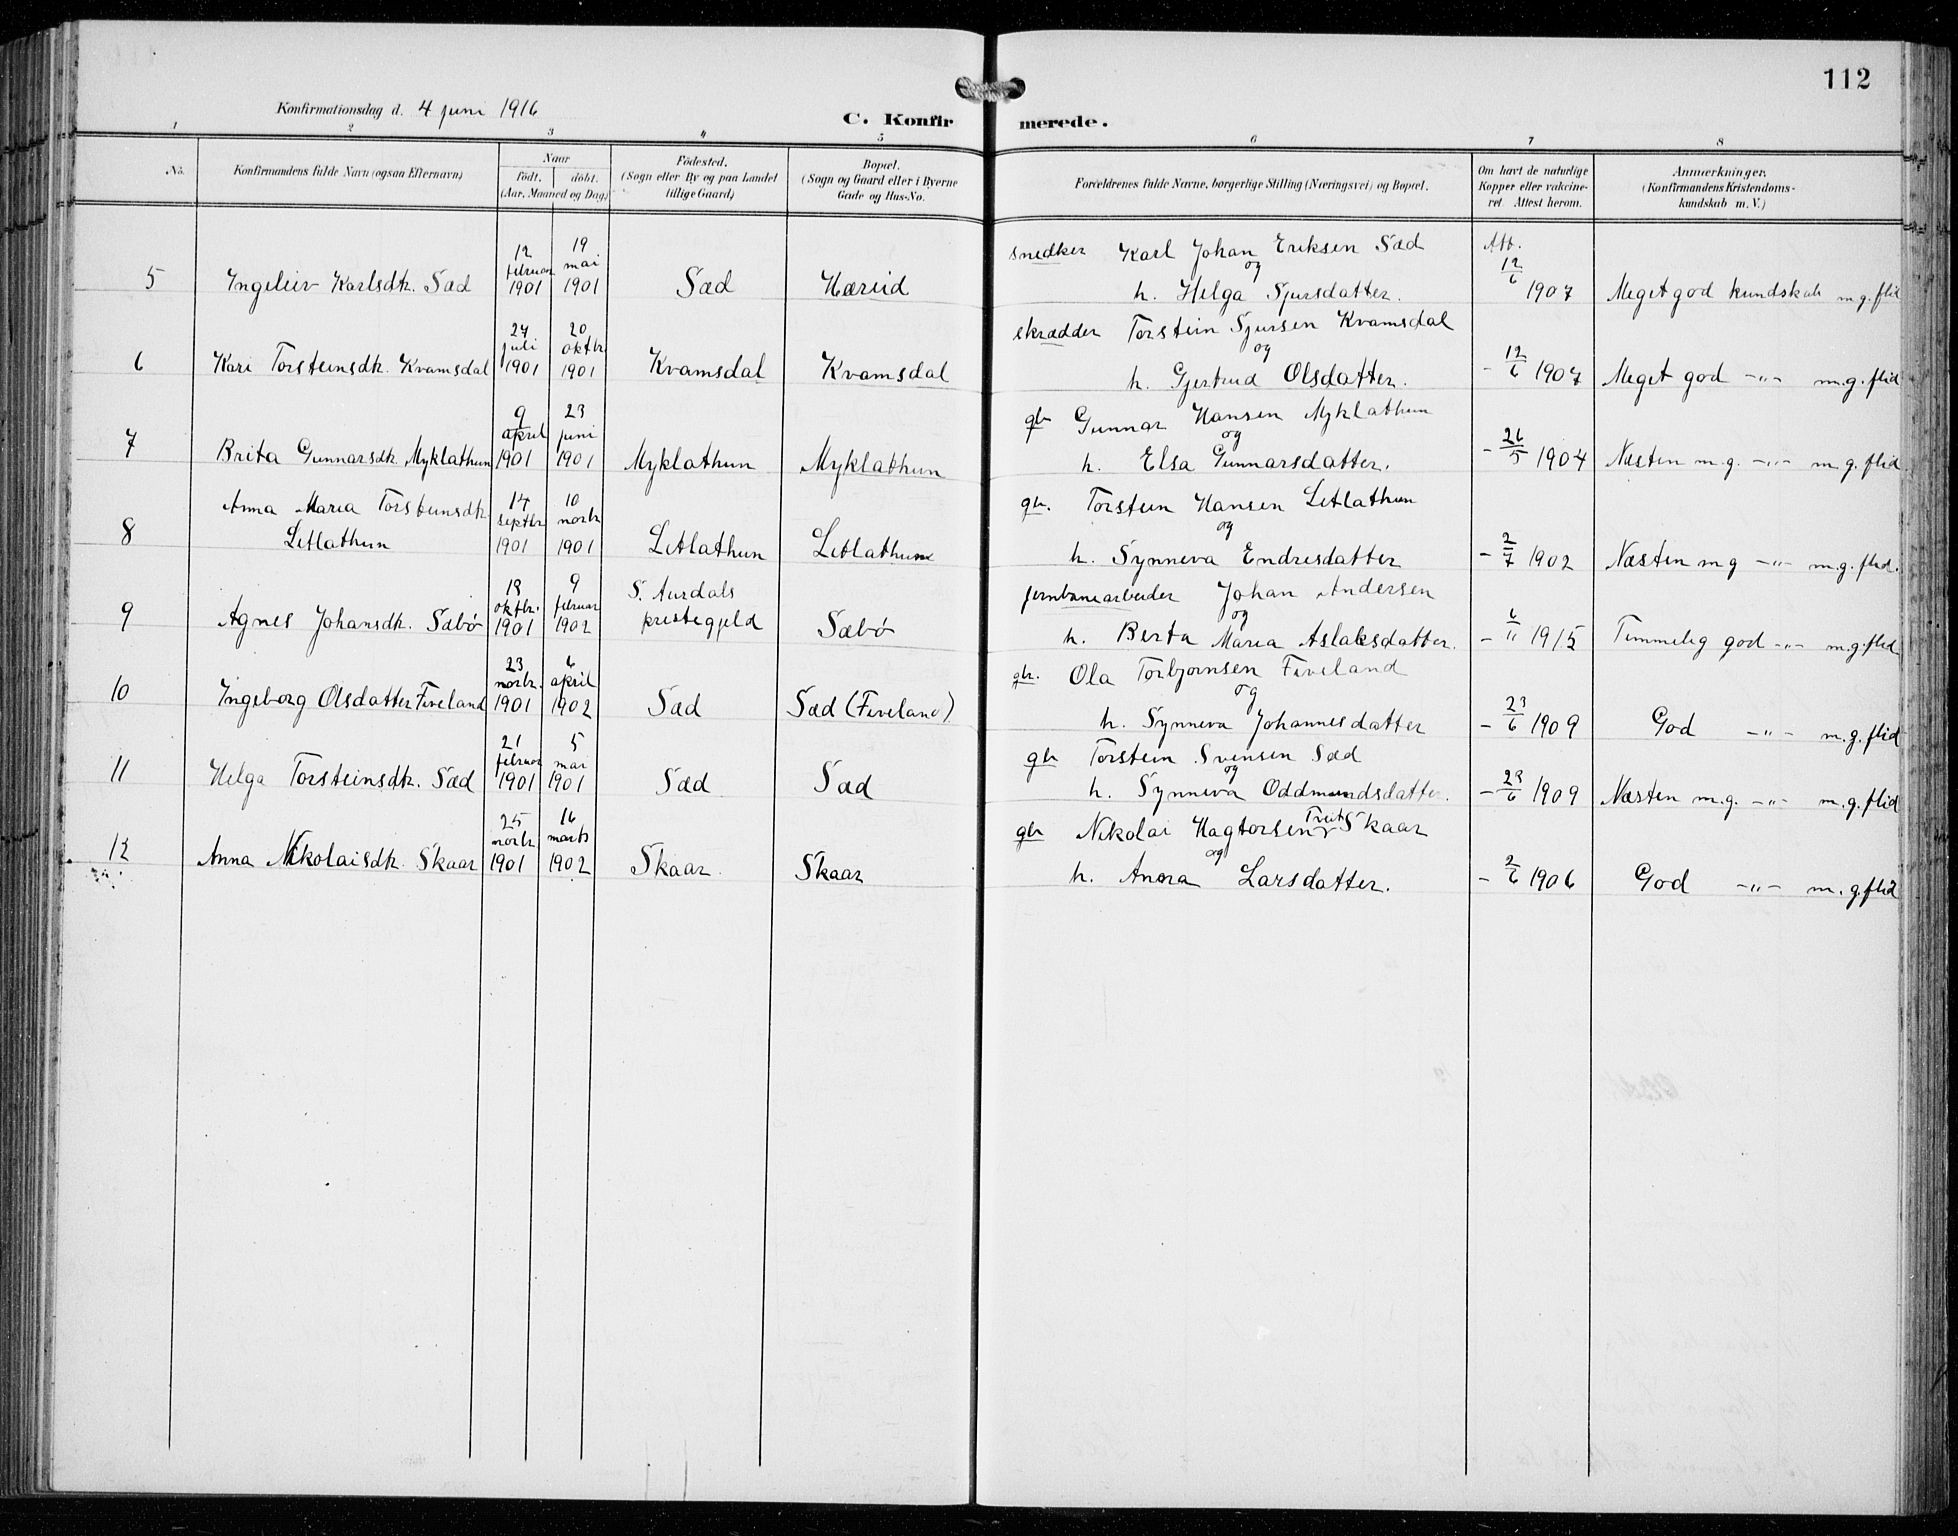 112
Konfirmationsdag d. 4 juni 1916
C. Konfirmerede.
1 2 3 4 5 6 7 8
No. Konfirmandens fulde Navn (ogsaa Efternavn) Naar født. døbt. (Aar, Maaned og Dag) Födested. (Sogn eller By og paa Landet tillige Gaard) Bopæl. (Sogn og Gaard eller i Byerne Gade og Hus-No. Forældrenes fulde Navne, borgerlige Stilling (Næringsvei) og Bopæl. Om havt de naturlige Kopper eller vakcineret Attest herom. Anmærkninger. (Konfirmandens Kristendomskundskab m. V.)
5 Ingeleiv Karlsdtr. Sæd 12 februar 1901 19 mai 1901 Sæd Hæreid snedker Karl Johan Eriksen Sæd og h. Helga Sjursdatter. Att. 12/6 1907 Meget god kundskab m.g. flid
6 Kari Torsteinsdtr. Kvamsdal 24 juli 1901 20 oktbr 1901 Kvamsdal Kvamsdal skrædder Torstein Sjursen Kvamsdal og h. Gjertrud Olsdatter. - 12/6 1907 Meget god -"- m.g. flid
7 Brita Gunnarsdtr. Myklathun 9 april 1901 23 juni 1901 Myklathun Myklathun gbr Gunnar Hansen Myklathun og h. Elsa Gunnarsdatter. - 26/5 1904 Næsten m.g. -"- m.g. flid.
8 Anna Maria Torsteinsdtr Litlathun 14 septbr 1901 10 novbr 1901 Litlathun Litlathun gbr. Torstein Hansen Litlathun og h. Synneva Endresdatter - 2/7 1902 Næsten m g -"- m.g. flid.
9 Agnes Johansdtr. Sæbø 18 oktbr. 1901 9 februar 1902 S. Aurdals prestegjeld Sæbø jernbanearbeider Johan Andersen og h. Berta Maria Aslaksdatter. - 6/11 1915 Temmelig god -"- m.g. flid
10 Ingeborg Olsdatter Fiveland 23 novbr. 1901 6 april 1902 Sæd Sæd (Fiveland) gbr. Ola Torbjørnsen Fiveland og h. Synneva Johannesdatter - 23/6 1909 God -"- m.g. flid
11 Helga Torsteinsdtr. Sæd 21 februar 1901 5 mai 1901 Sæd Sæd gbr Torstein Svensen Sæd og h. Synneva Oddmundsdatter. - 23/6 1909 Næsten m.g. -"- m.g. flid
12 Anna Nikolaisdtr. Skaar 25 novbr 1901 16 marts 1902 Skaar Skaar gbr Nikolai Hagtorsen Tveit Skaar og h. Anna Larsdatter. - 2/6 1906 God -"- m.g. flid